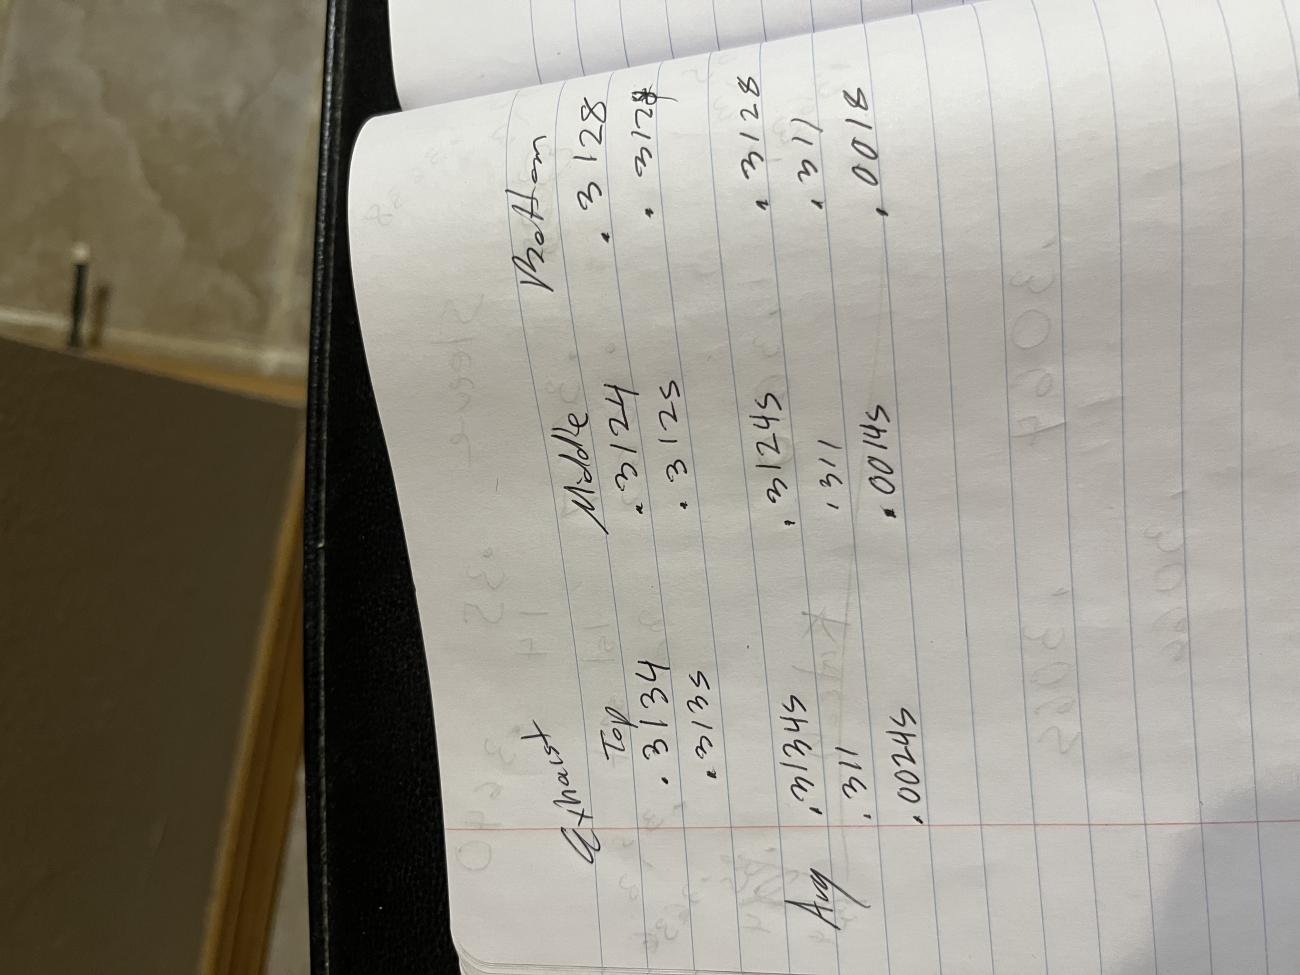 Exhaust
Top Middle Bottom
.3134 .3124 .3128
.3135 .3125 .3128
Avg .31345 .31245 .3128
.311 .311 .311
.00245 .00145 .0018